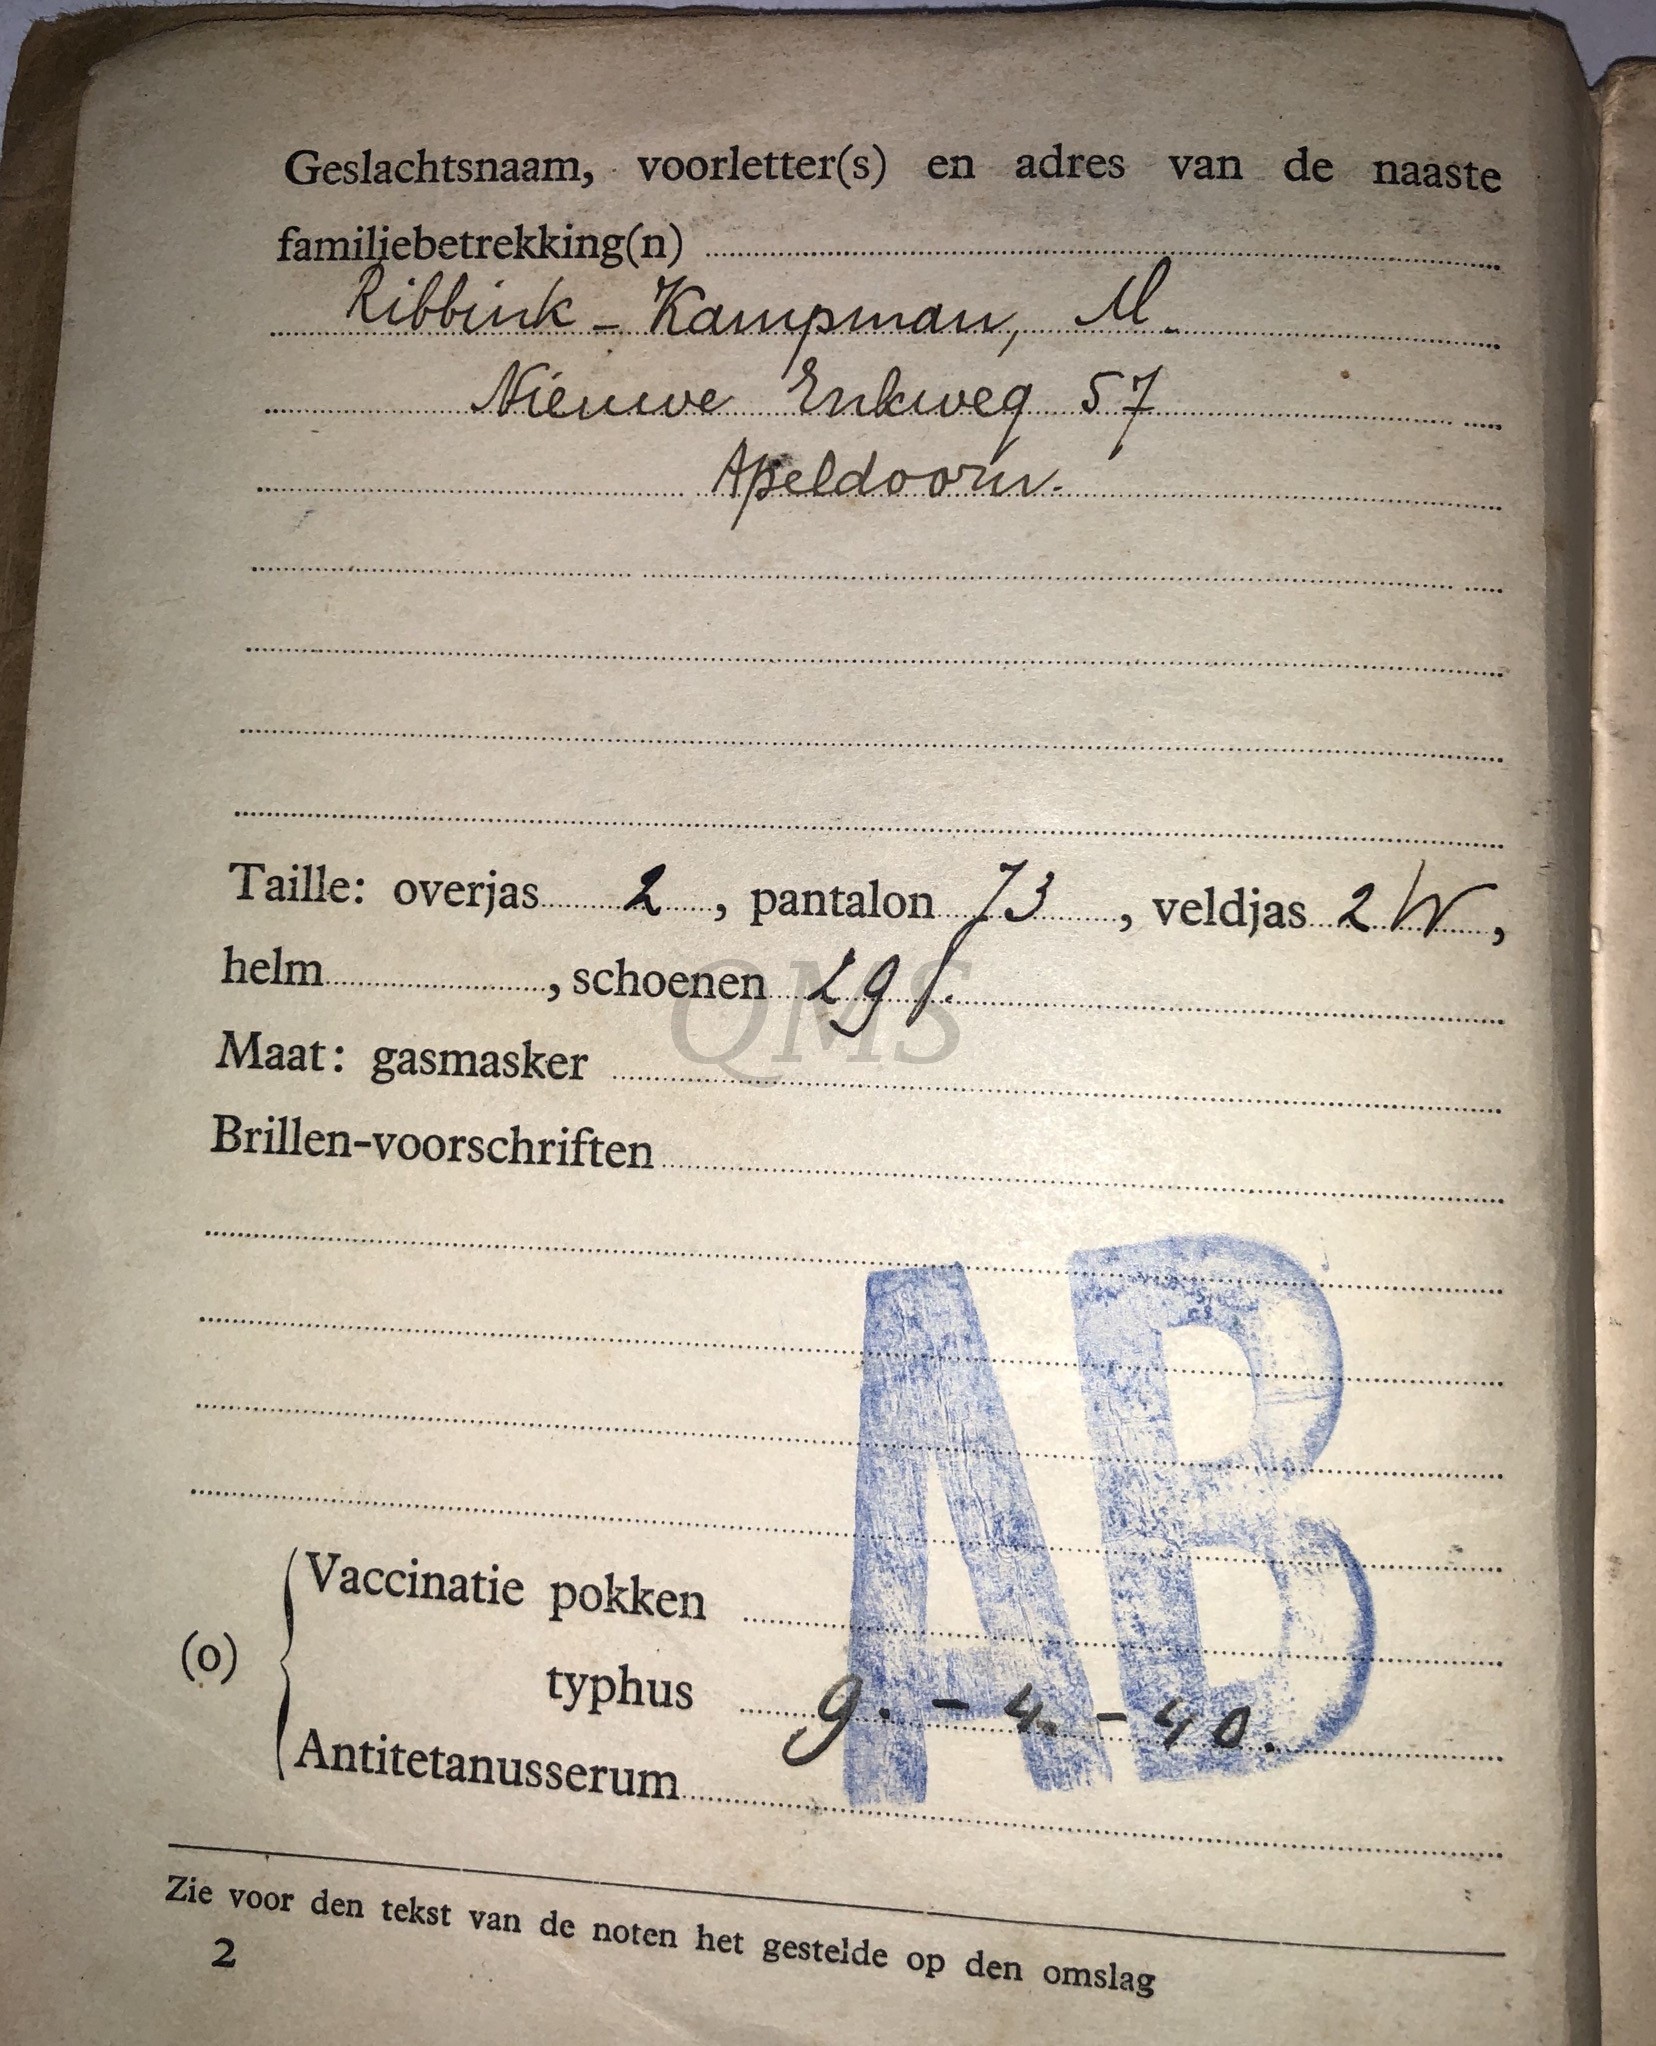 Geslachtsnaam, voorletter(s) en adres van de naaste
familiebetrekking(n)
Ribbink - Kampman, M.
Nieuwe Enkweg 57
Apeldoorn.
Taille: overjas 2, pantalon 73, veldjas 2 W,
helm, schoenen 29
QMS
Maat: gasmasker
Brillen-voorschriften
AB
Vaccinatie pokken
(o) typhus 9. - 4. - 40.
Antitetanusserum
Zie voor den tekst van de noten het gestelde op den omslag
2